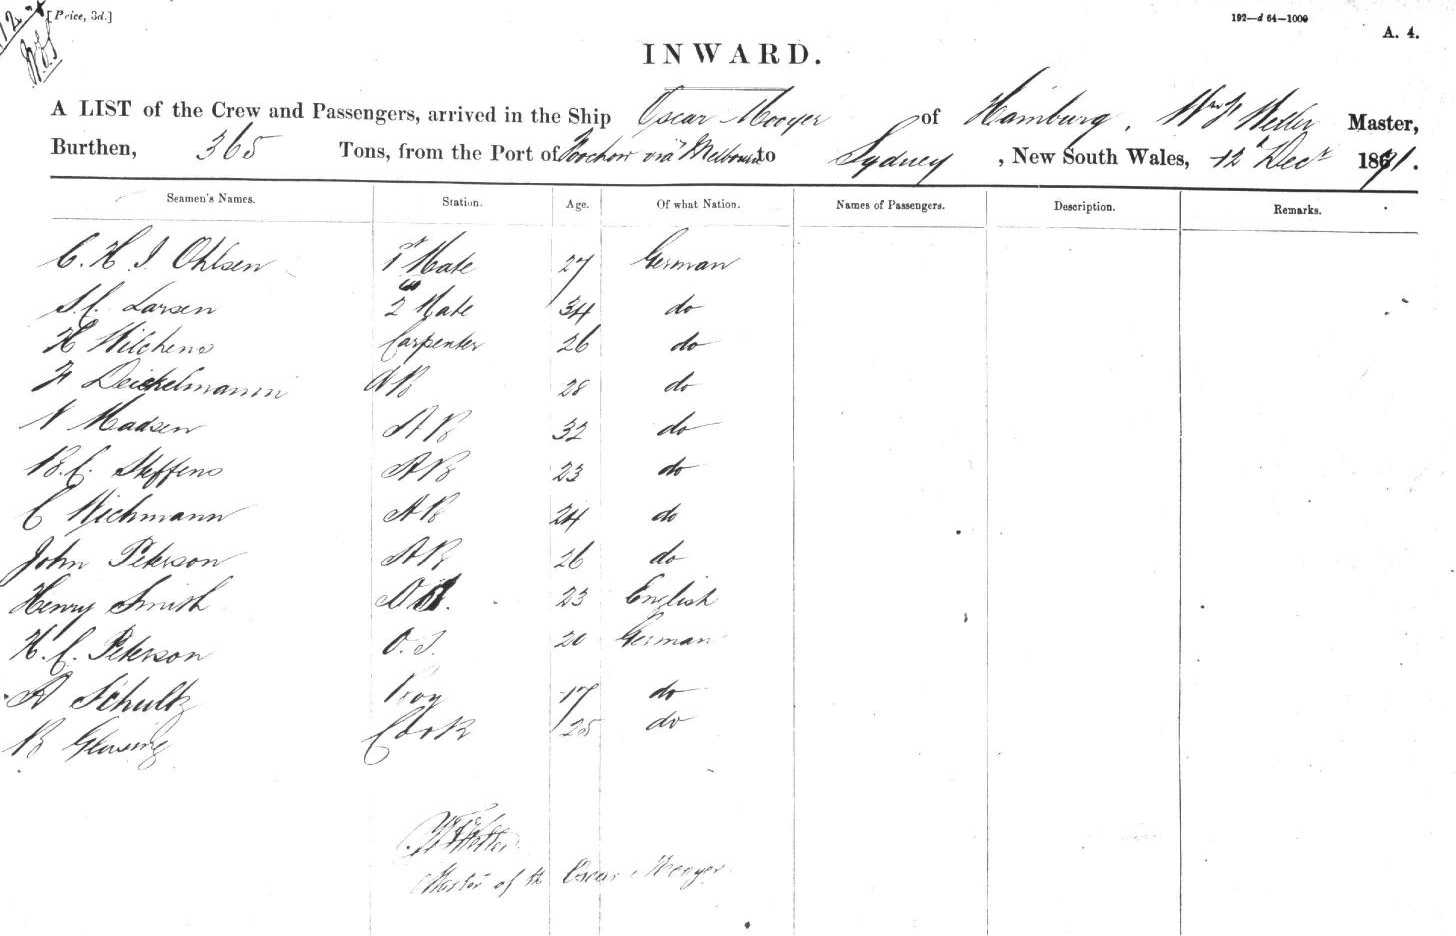 [Price, 3d.]
192—d 64—1000
A. 4.
INWARD.
A LIST of the Crew and Passengers, arrived in the Ship Oscar Mooyer of Hamburg, Wm F Weller Master,
Burthen, 365 Tons, from the Port of Foochow via Melbourne to Sydney, New South Wales, 12 Decr 1871.
Seamen's Names. Station. Age. Of what Nation. Names of Passengers. Description. Remarks.
C. H. J. Ohlsen 1st Mate 27 German
S. C. Larsen 2 Mate 34 do
H Wilchens Carpenter 26 do
F Deickelmann AB 28 do
N Madsen AB 32 do
B. C. Steffens AB 23 do
C Wichmann AB 24 do
John Peterson AB 26 do
Henry Smith 23 English
H. C. Peterson O. S. 20 German
A Schultz Boy 17 do
B Cook 25 do
Master of the Oscar Mooyer